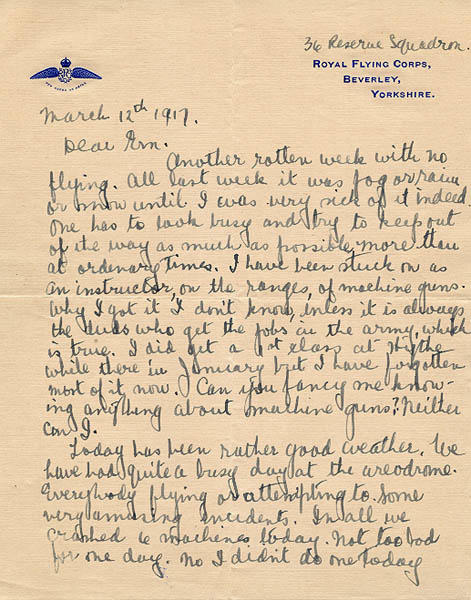 36 Reserve Squadron.
ROYAL FLYING CORPS,
BEVERLEY,
YORKSHIRE.
March 12th 1917.
Dear Ern.
Another rotten week with no
flying. All last week it was fog or rain
or snow until I was very sick of it indeed.
One has to look busy and try to keep out
of the way as much as possible, more than
at ordinary times. I have been stuck on as
an instructor, on the ranges, of machine guns.
Why I got it I don't know, unless it is always
the duds who get the jobs in the army, which
is true. I did get a 1st class at Hythe
while there in January but I have forgotten
most of it now. Can you fancy me know-
ing anything about machine guns? Neither
can I.
Today has been rather good weather. We
have had quite a busy day at the areodrome.
Everybody flying or attempting to. Some
very amusing incidents. In all we
crashed 6 machines today. Not too bad
for one day. No I didn't do one today